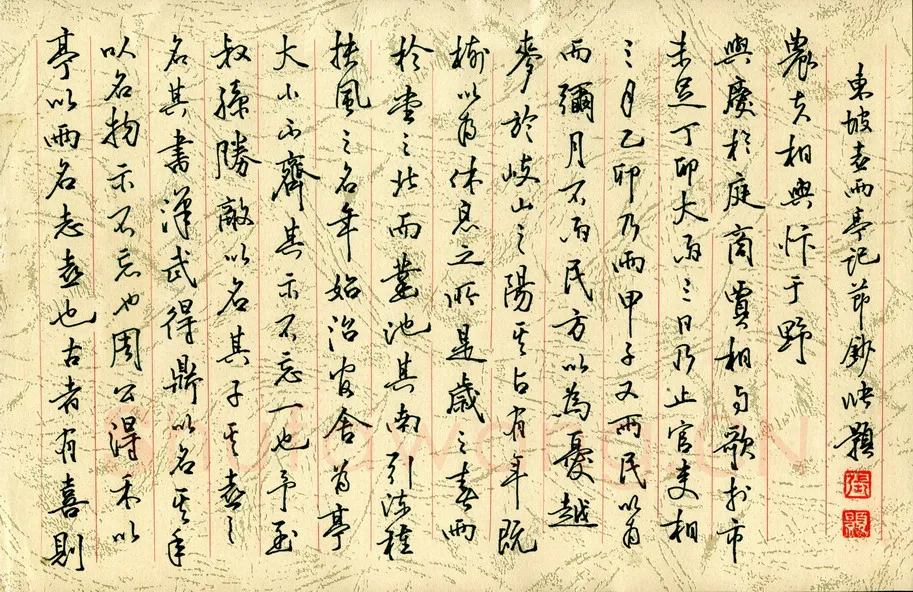 亭以雨名志喜也古者有喜則
以名物示不忘也周公得禾以
名其書漢武得鼎以名其年
叔孫勝敵以名其子其喜之
大小不齊其示不忘一也予至
扶風之名年始治官舍為亭
於堂之北而鑿池其南引流種
樹以為休息之所是歲之春雨
麥於岐山之陽其占有年既
而彌月不雨民方以為憂越
三月乙卯乃雨甲子又雨民以為
未足丁卯大雨三日乃止官吏相
與慶於庭商賈相与歌於市
農夫相與忭于野
東坡喜雨亭記節鈔